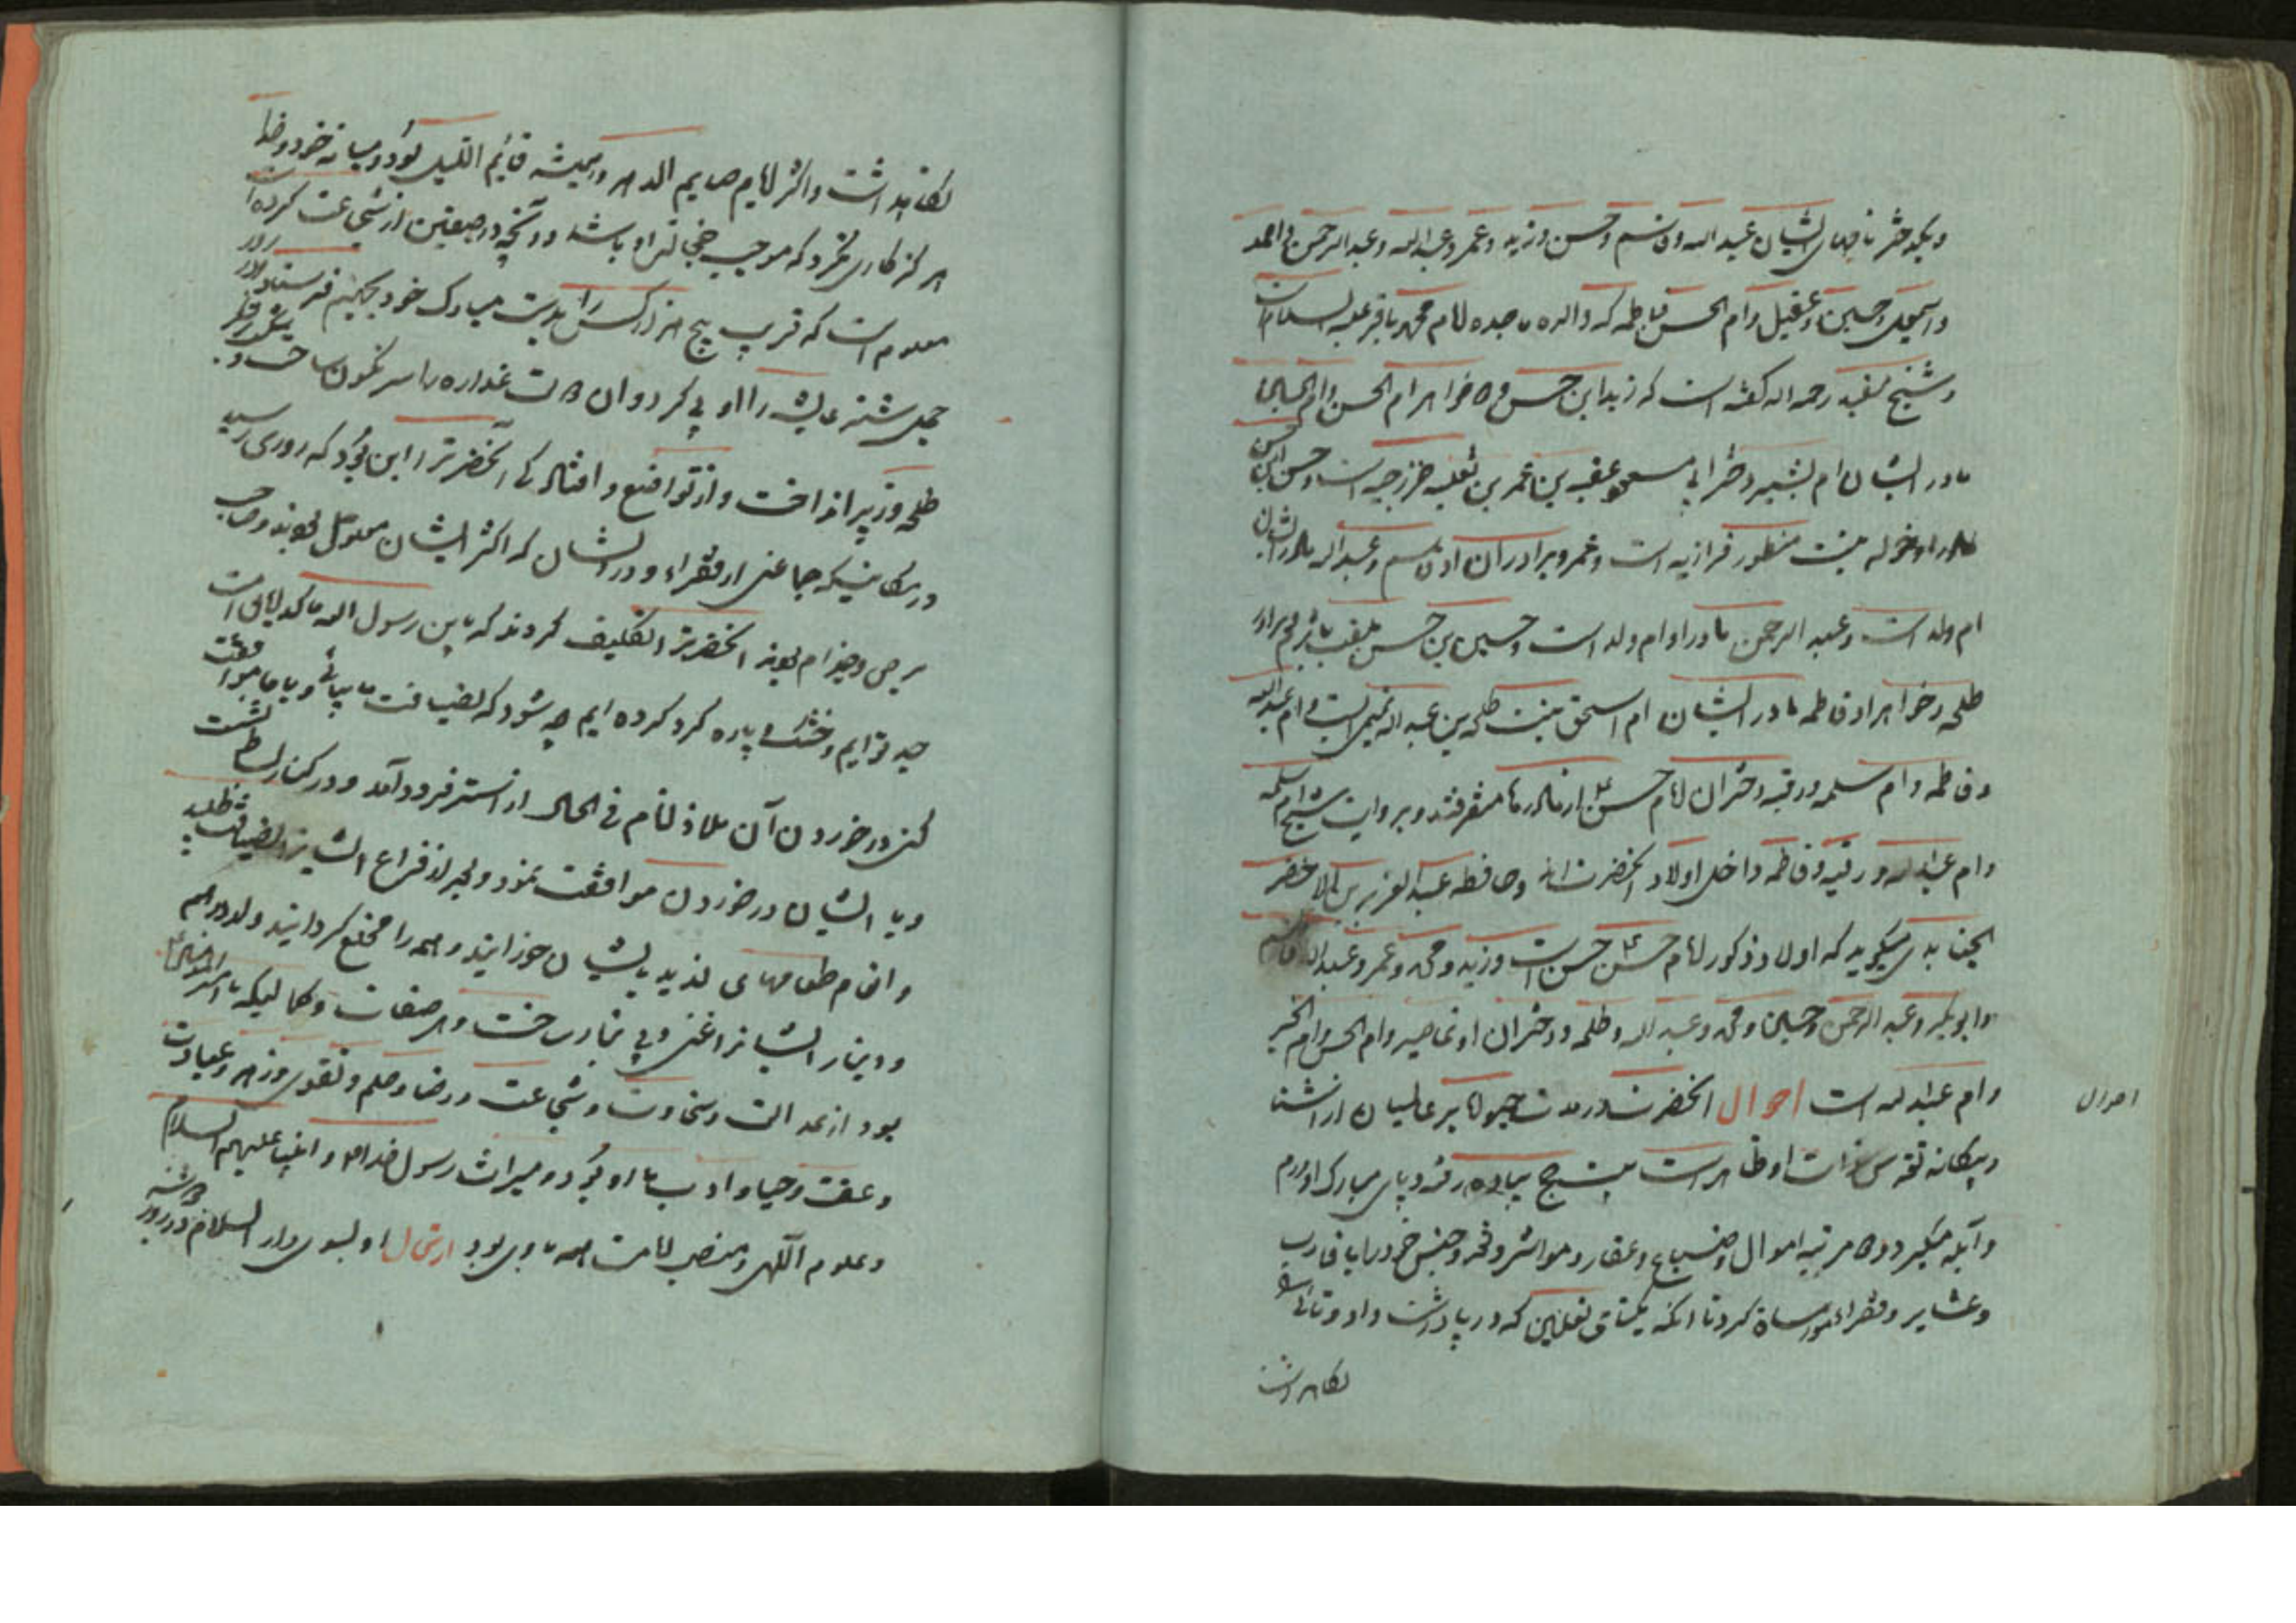 و یکدختر نامهای ایشان عبدالله و قاسم و حسن و زید و عمر و عبدالله و عبدالرحمن و احمد
و اسمعیل و حسین و عقیل و ام الحسن فاطمه که والده ماجده امام محمد باقر علیه السلام است
و شیخ مفید رحمه الله گفته است که زید ابن حسن و خواهر ام الحسن و ام الحسین
مادر ایشان ام بشیر دختر ابی مسعود عقبه بن عمر بن ثعلبه خزرجیه است و حسن ابن حسن
مادر او خوله بنت منظور فزاریه است و عمر و برادران او قاسم و عبدالله مادر ایشان
ام ولد است و عبدالرحمن مادر او ام ولد است و حسین بن حسن ملقب باثرم و برادر
طلحه و خواهر او فاطمه مادر ایشان ام اسحق بنت طلحه بن عبدالله تیمی است و ام عبدالله
و فاطمه و ام سلمه و رقیه دختران امام حسن از مادرها متفرقند و بروایت شیخ ام سلمه
و ام عبدالله و رقیه و فاطمه داخل اولاد آنحضرت اند و حافظ عبدالعزیز بن اخضر
الجنابدی میگوید که اولاد ذکور امام حسن حسن است و زید و محمد و عمر و عبدالله و قاسم
و ابوبکر و عبدالرحمن و حسین و محمد و عبدالله و طلحه و دختران او تماضر و ام الحسن و ام الخیر
و ام عبدالله است احوال آنحضرت در مدت حیوة بر عالمیان از آشنا
و بیگانه تقدس ذات او ظاهر است بیست حج پیاده رفته و پای مبارک او ورم
و آبله میکرد دو مرتبه اموال و ضیاع و عقار و مواشی و قه و جنس خود را با اقارب
و عشایر و فقراء مواساة کرد تا آنکه یکتای نعلین که در پا داشت داد و تای
نگاهداشت
احوال
نگاهداشت و اکثر ایام صایم الدهر و همیشه قایم اللیل بود و میانه خود و خدا
هرگز کاری نکرد که موجب خجالت او باشد و آنچه در صفین از شجاعت کرده است
معلوم است که قریب پنج هزار کس را بدست مبارک خود بجهنم فرستاد و در روز
جمل شتر عایشه را او پی کرد و آن غداره را سرنگون ساخت و
طلحه و زبیر انداخت و از تواضع و افتادگی آنحضرت را این بود که روزی رسید
در مکانیکه جماعتی از فقراء و درویشان که اکثر ایشان معلول بودند و صاحب
برص و جذام بودند آنحضرت را تکلیف کردند که یابن رسول الله ما گدایان امت
جد توایم و خشک پاره گرد کرده ایم چه شود که بضیافت ما بیائی و با ما موافقت
کنی در خوردن آن ملاذ انام فی الحال از استر فرود آمد و در کنار بساط نشست
و با ایشان در خوردن موافقت نمود و بعد از فراغ ایشان را بضیافت طلبید
و اقسام طعامهای لذیذ بایشان خورانید و همه را مخلع گردانید و از درهم
و دینار ایشان را غنی و بی نیاز ساخت و هر صفات و کمالیکه با امیر المؤمنین
بود از عدالت و سخاوت و شجاعت و رضا و حلم و تقوی و زهد و عبادت
و عفت و حیا و ادب با او بود و میراث رسول خدا و انبیا علیهم السلام
و علوم الهی و منصب امامت همه با وی بود ارتحال او بسوی دار السلام در روز